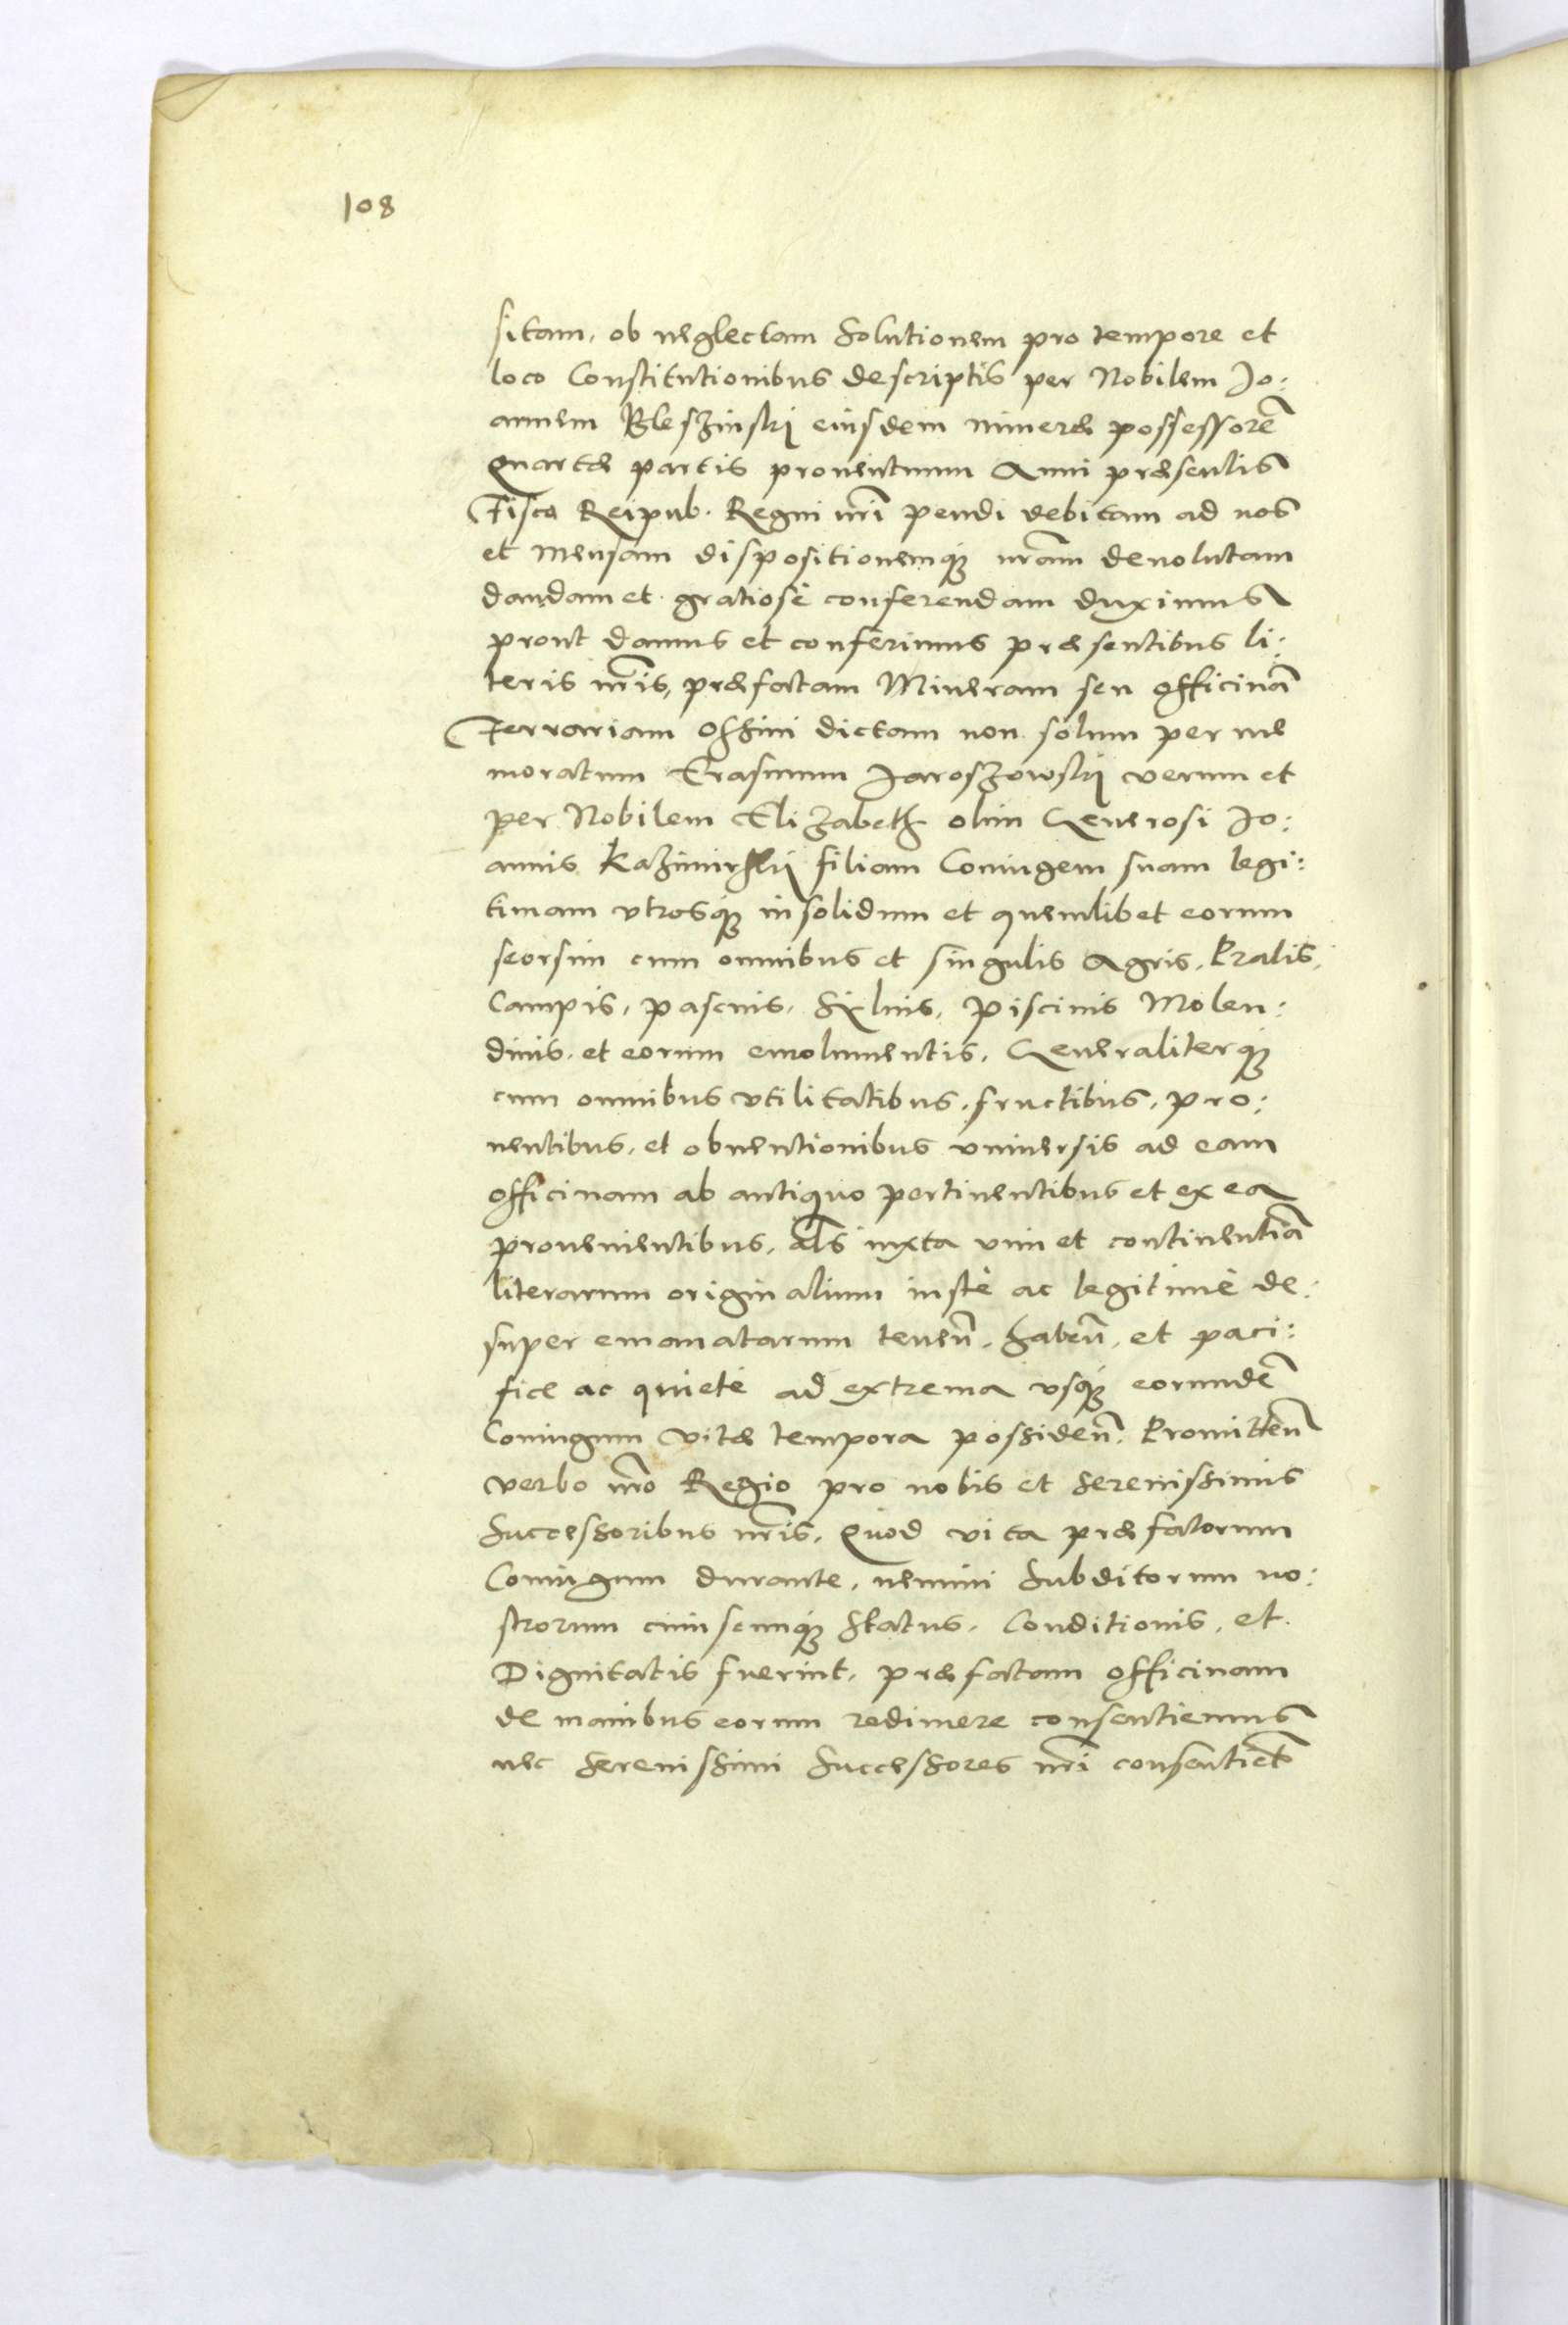 108
sitam, ob neglectam Solutionem pro tempore et
loco Constitutionibus descriptis per Nobilem Jo:
annem Bleszinskij eiusdem mineræ possessorē
Quartæ partis prouentuum Anni præsentis
Fisco Reipub. Regni nr̄i pendi debitam ad nos
et Mensam dispositionemq́ꝫ nr̄am deuolutam
dandam et gratiosè conferendam duximus
prout damus et conferimus præsentibus li:
teris nr̄is, præfatam Mineram seu officinā
Ferrariam Ossini dictam non solum per me
moratum Erasmum Jaroszowskij verum et
per Nobilem Elizabeth olim Generosi Jo:
annis Kazimirskij filiam Coniugem suam legi:
timam vtrosq́ꝫ insolidum et quemlibet eorum
seorsim cum omnibus et singulis Agris, Pratis,
Campis, pascuis, Syluis, piscinis Molen:
dinis, et eorum emolumentis, Generaliterq́ꝫ
cum omnibus vtilitatibus, fructibus, pro:
uentibus, et obuentionibus vniuersis ad eam
officinam ab antiquo pertinentibus et ex ea
prouenientibus, al̄s iuxta vim et continentiā
literarum originalium iustè ac legitimè de:
super emanatarum teneñ, habeñ, et paci:
ficè ac quietè ad extrema vsq́ꝫ eorundē
Coniugum vitæ tempora possideñ. Promitteñ
verbo nr̄o Regio pro nobis et Serenissimis
Successoribus nr̄is, Quod vita præfatorum
Coniugum durante, nemini Subditorum no:
strorum cuiuscunq́ꝫ Status, Conditionis, et
Dignitatis fuerint, præfatam officinam
de manibus eorum redimere consentiemus
nec Serenissimi Successores nr̄i consentiēt